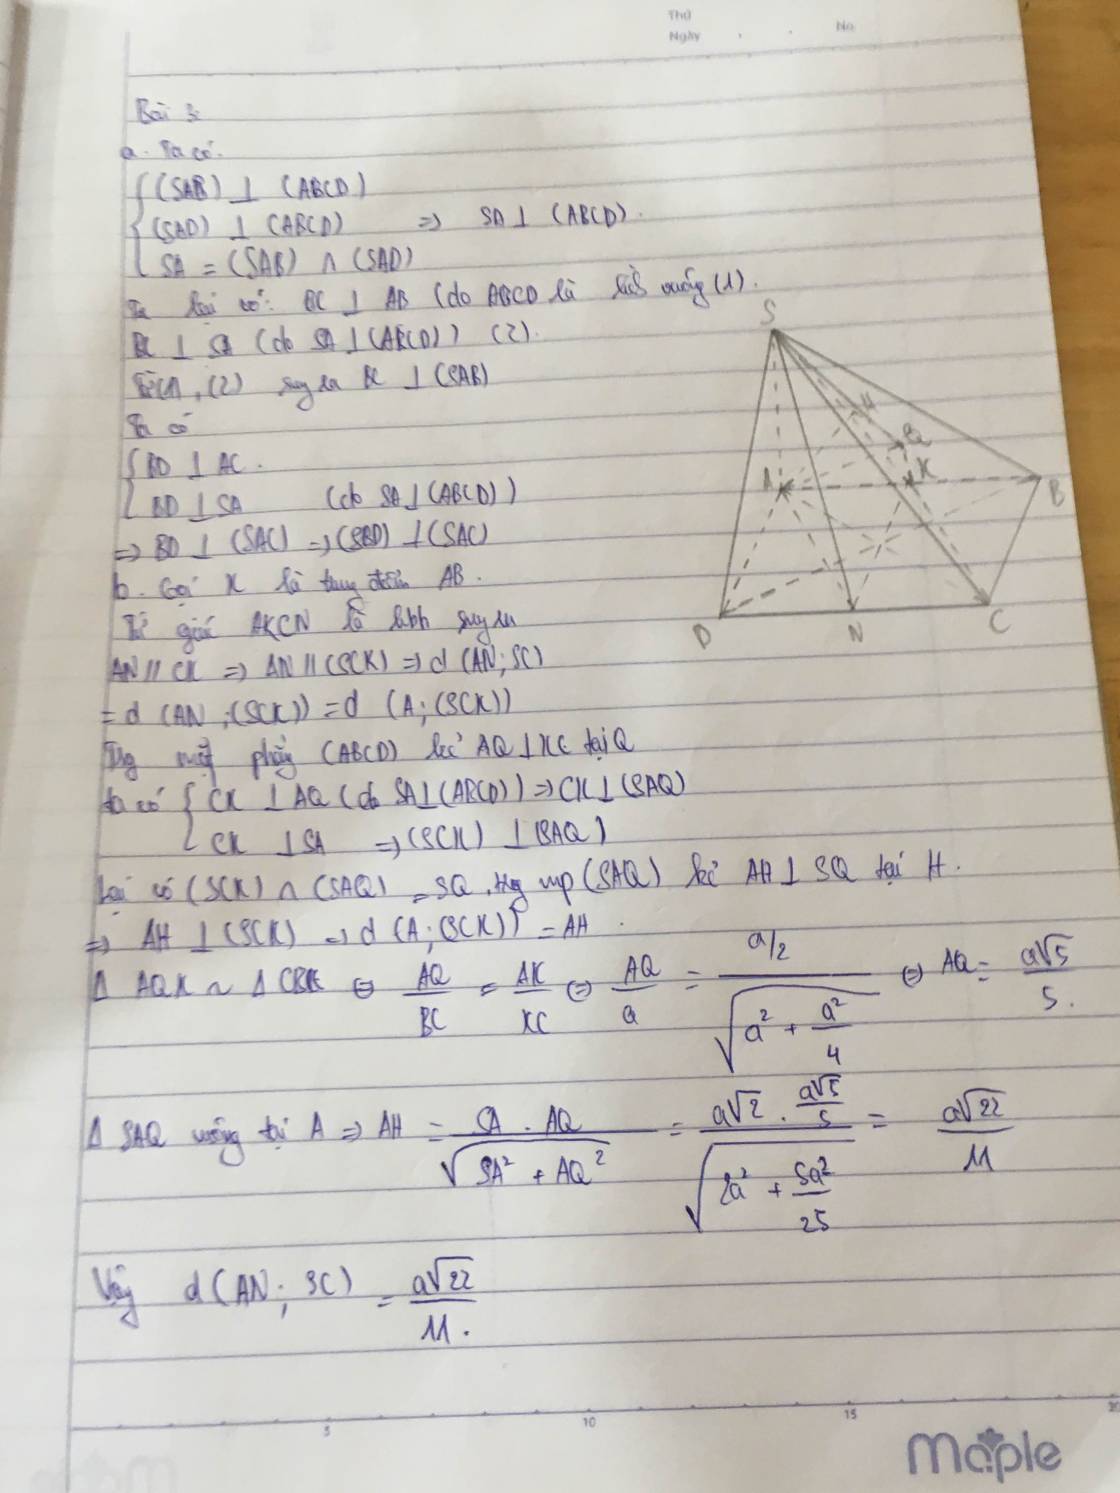 Thứ
Ngày
No
Bài 3:
a. Ta có.
{ (SAB) ⊥ (ABCD)
(SAD) ⊥ (ABCD) => SA ⊥ (ABCD).
SA = (SAB) ∩ (SAD)
Ta lại có: BC ⊥ AB (do ABCD là vuông (1).
BC ⊥ SA (do SA ⊥ (ABCD)) (2).
Từ (1), (2) suy ra BC ⊥ (SAB)
Ta có
{ BD ⊥ AC.
BD ⊥ SA (do SA ⊥ (ABCD))
=> BD ⊥ (SAC) => (SBD) ⊥ (SAC)
b. Gọi K là trung điểm AB.
Tứ giác AKCN là hbh suy ra
AN // CK => AN // (SCK) => d (AN; SC)
= d (AN; (SCK)) = d (A; (SCK))
Trg mặt phẳng (ABCD) kẻ AQ ⊥ KC tại Q
ta có { CK ⊥ AQ (do SA ⊥ (ABCD)) => CK ⊥ (SAQ)
CK ⊥ SA => (SCK) ⊥ (SAQ)
Lại có (SCK) ∩ (SAQ) = SQ. Trg mp (SAQ) kẻ AH ⊥ SQ tại H.
=> AH ⊥ (SCK) => d (A; (SCK)) = AH.
Δ AQK ~ Δ CBK ⇔ AQ/BC = AK/KC ⇔ AQ/a = (a/2)/√(a² + a²/4) ⇔ AQ = a√5/5.
Δ SAQ vuông tại A => AH = SA . AQ/√(SA² + AQ²) = (a√2 . a√5/5)/√(2a² + 5a²/25) = a√22/11
Vậy d(AN; SC) = a√22/11.
S
H
Q
A
K
B
D
N
C
5
10
15
20
maple